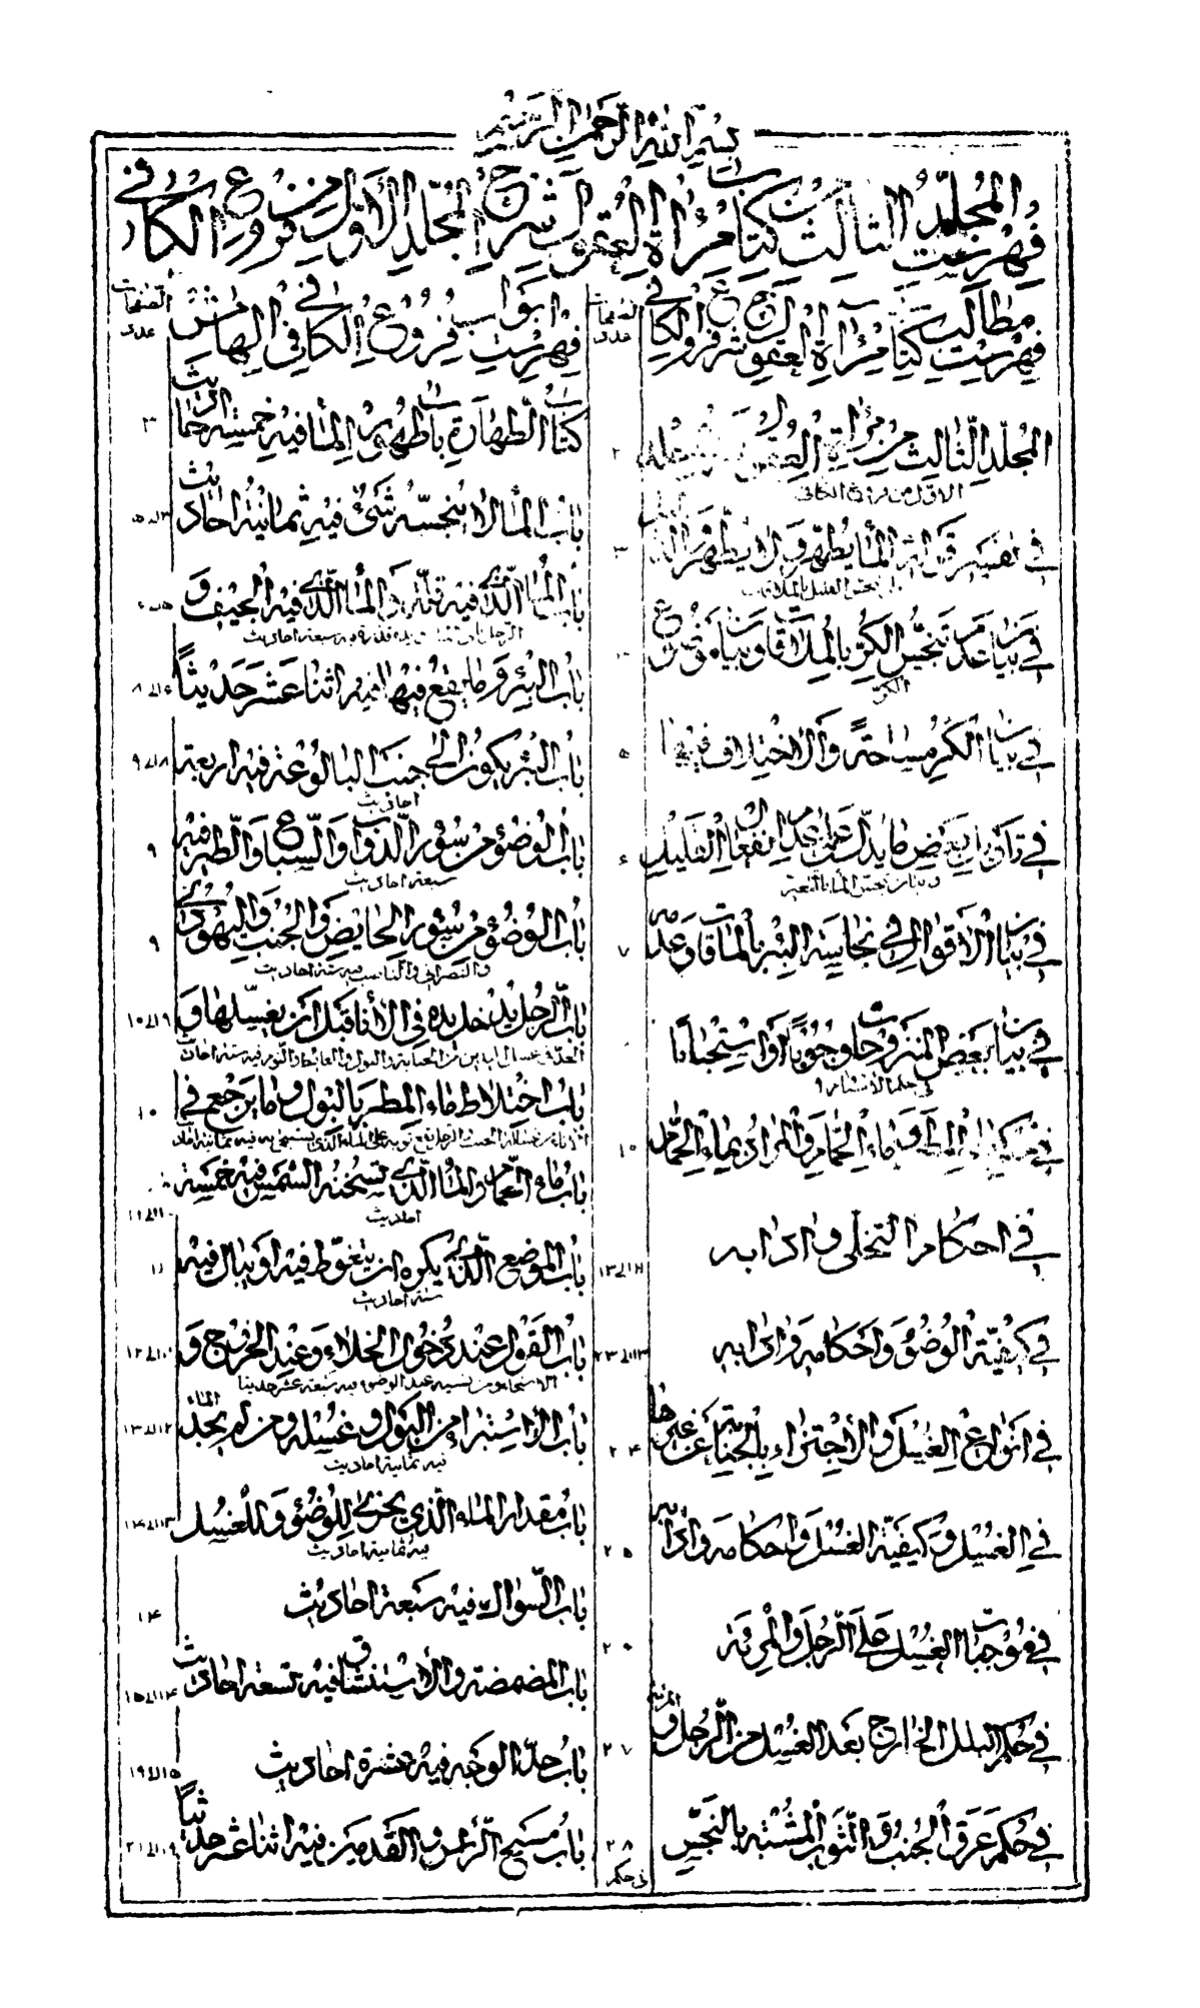 بسم الله الرحمن الرحيم
فهرست المجلد الثالث كتاب مرآة العقول شرح المجلد الاول من فروع الكافي
فهرست مطالب كتاب مرآة العقول شرح فروع الكافي
عدد الصفحات
المجلد الثالث من مرآة العقول
الاول من فروع الكافي
٢
في تفسير قوله الماء يطهر ولا يطهر
٣
في بيان عدم تنجس الكر بالملاقات وبيان موضوع
الكر
في بيان الكر مساحة والاختلاف فيها
٥
في تأويل بعض ما يدل على عدم انفعال القليل
وبيان نجس الماء بالتغير
٦
في بيان الأقوال في نجاسة البئر بالملاقات وعدمه
٧
في بيان بعض المنزوحات وجوبا أو استحبابا
في ماء الحمام والمراد بماء الحمام
١٠
في احكام التخلي وادابه
١١ الى ١٣
في كيفية الوضوء واحكامه وادابه
١٣ الى ٢٣
في انواع الغسل والأجتزاء بالجنابة عن غيرها
٢٤
في الغسل وكيفية الغسل واحكامه وادابه
٢٥
في موجبات الغسل على الرجل والمرئة
٢٦
في حكم البلل الخارج بعد الغسل من الرجل والمرئة
٢٧
في حكم عرق الجنب والثوب المشتبه بالنجس
٢٨
في حكم
فهرست ابواب فروع الكافي في الهامش
عدد الصفحات
كتاب الطهارة باب طهور الماء فيه خمسة احاديث
٣
باب الماء لا ينجسه شئ فيه ثمانية احاديث
٣ الى ٥
باب الماء الذي فيه قلة والماء الذي فيه الجيف و
الرجل يده قذرة فيه سبعة احاديث
٥ الى ٦
باب البئر وما يقع فيها فيه اثنا عشر حديثاً
٦ الى ٨
باب البئر يكون الى جنب البالوعة فيه اربعة
احاديث
٨ الى ٩
باب الوضوء من سؤر الدواب والسباع والطير فيه
سبعة احاديث
٩
باب الوضوء من سؤر الحايض والجنب واليهودي
والنصراني والناصب فيه ستة احاديث
٩
باب الرجل يدخل يده في الأناء قبل ان يغسلها و
الحد في غسل اليدين من الجنابة والبول والغايط والنوم فيه ستة احاديث
٩ الى ١٠
باب اختلاط ماء المطر بالبول وما يرجع في
الاناء من غسالة الجنب والرجل يقع ثوبه على الماء الذي يستنجى به فيه ثمانية احاديث
١٠
باب ماء الحمام والماء الذي تسخنه الشمس فيه خمسة
احاديث
١٠ الى ١١
باب الموضع الذي يكره ان يتغوط فيه او يبال فيه
ستة احاديث
١١
باب القول عند دخول الخلاء وعند الخروج و
الاستنجاء ومن نسيه عند الوضوء فيه سبعة عشر حديثا
١٠ الى ١٢
باب الأستبراء من البول وغسله ومن لم يجد الماء
فيه ثمانية احاديث
١٢ الى ١٣
باب مقدار الماء الذي يجزي للوضوء وللغسل
فيه ثمانية احاديث
١٣ الى ١٤
باب السواك فيه سبعة احاديث
١٤
باب المضمضة والأستنشاق فيه تسعة احاديث
١٤ الى ١٥
باب حد الوجه فيه عشرة احاديث
١٥ الى ١٩
باب مسح الرأس والقدمين فيه اثنا عشر حديثياً
١٩ الى ٢١